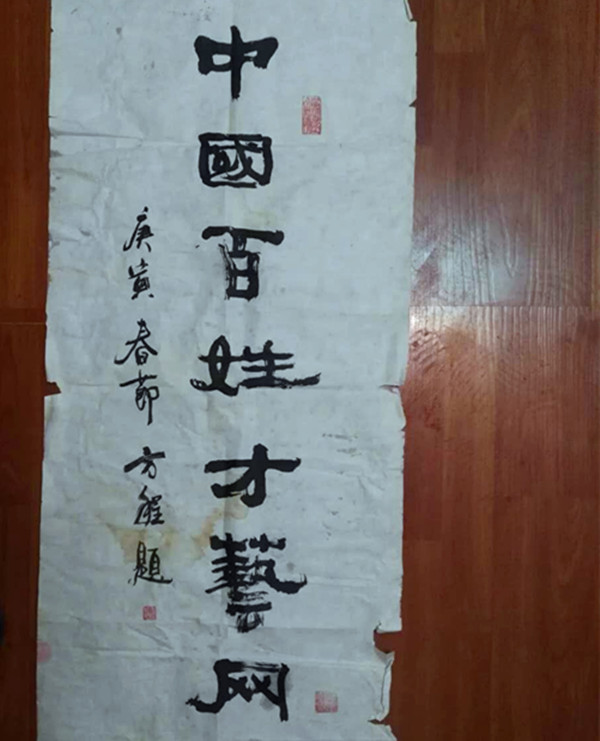 中國百姓才藝网
庚寅春節方程題